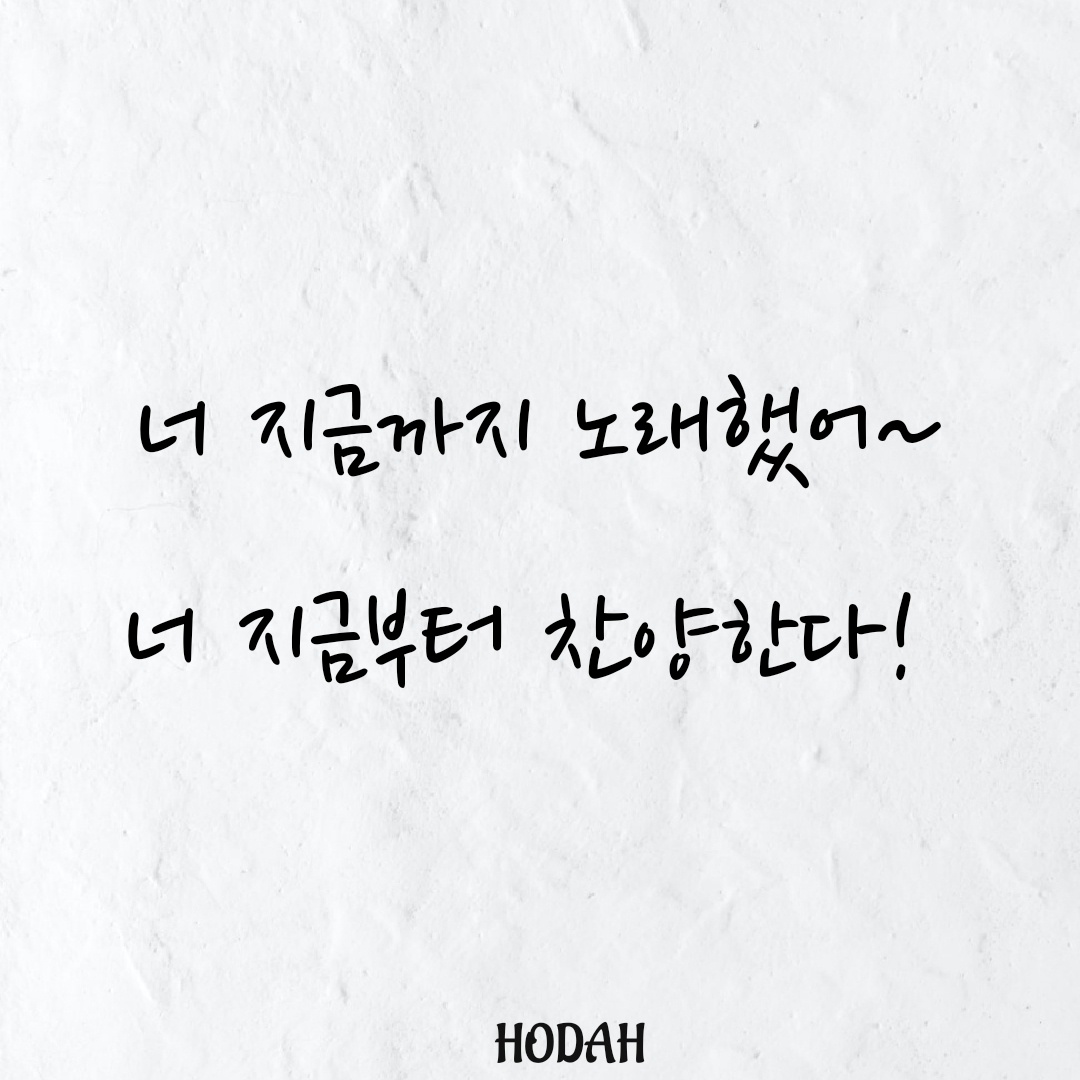 너 지금까지 노래했어~
너 지금부터 찬양한다!
HODAH